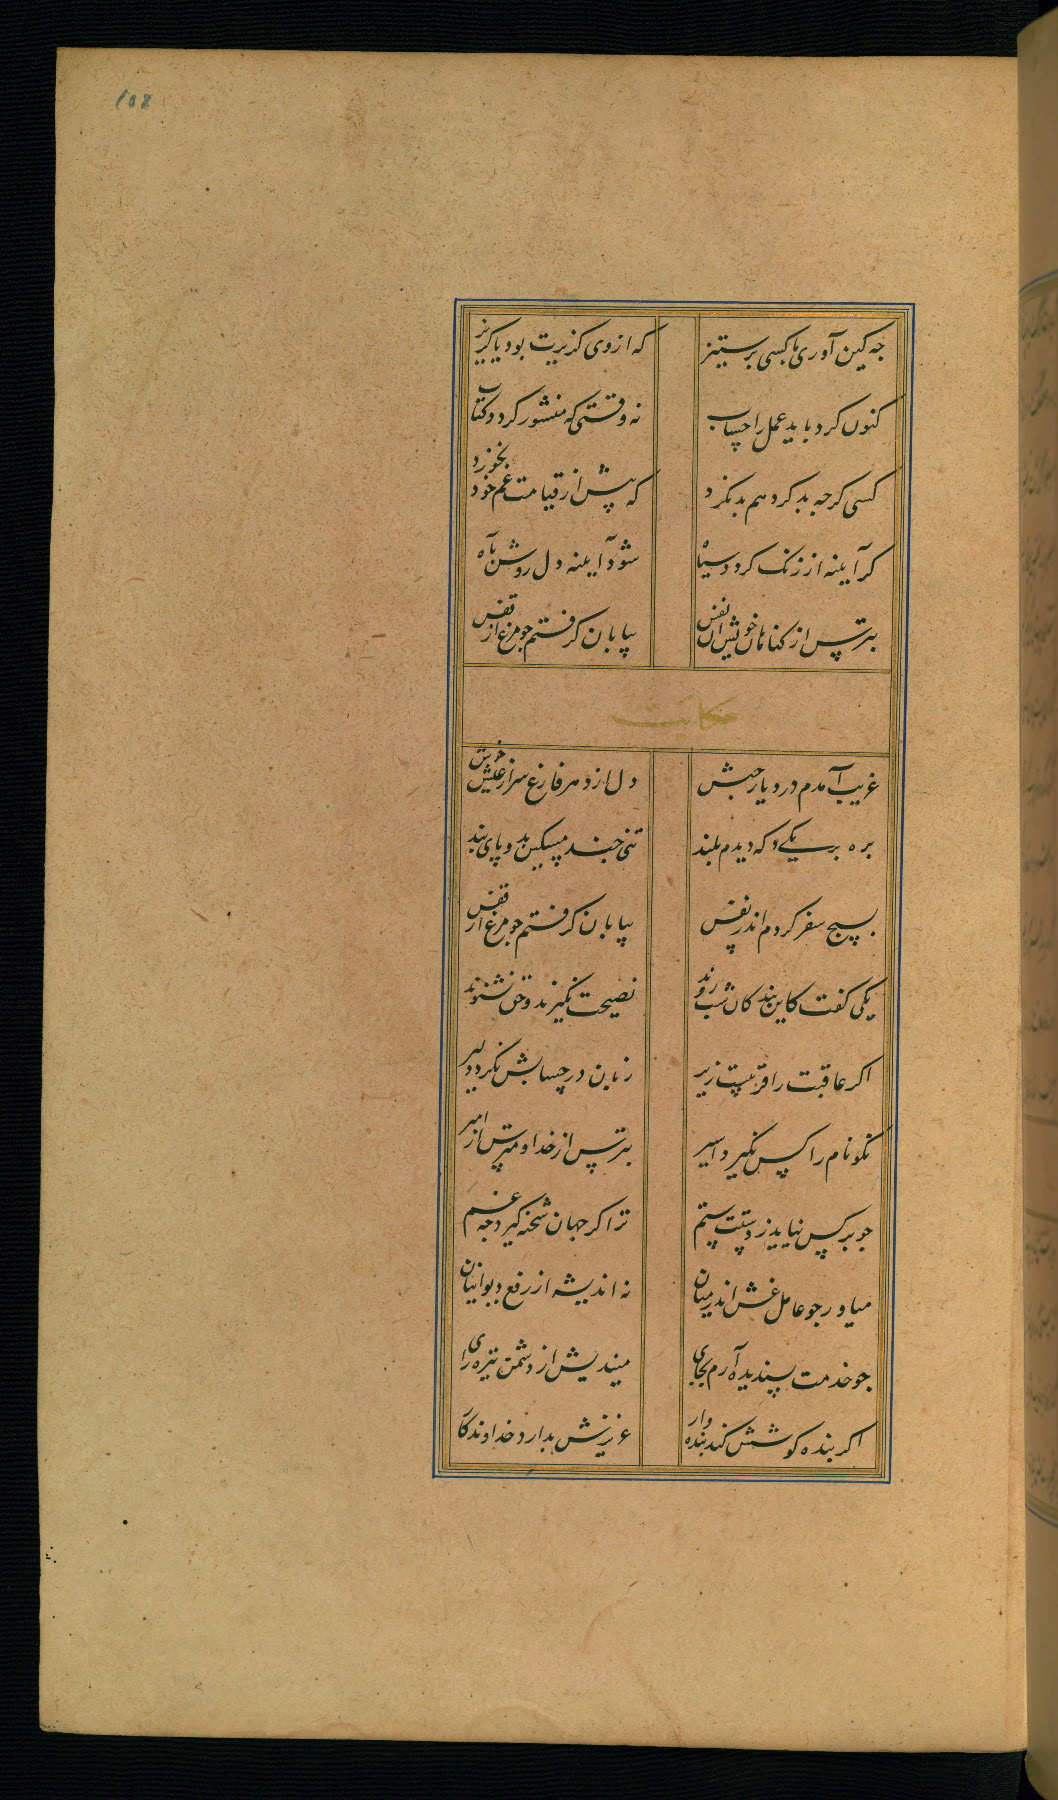 108
جه کین آوری با کسی بر ستیز که از وی کزیرت بود یا کریز
کنون کرد باید عمل را حساب نه وقتی که منشور کردد کتاب
کسی کرجه بد کرد هم بد نکرد که پیش از قیامت غم خود بخورد
کر آیینه از زنک کردد سیاه شود آیینه دل روشن بآه
بترس از کناهان خویش از نفس بیابان کرفتم جو مرغ از قفس
حکایت
غریب آمدم در دیار حبش دل از دهر فارغ سر از عیش خوش
بره بر یکی دکه دیدم بلند تنی جند مسکین بدو پای بند
بسیج سفر کردم اندر نفس بیابان کرفتم جو مرغ از قفس
یکی کفت کاین بندکان شب روند نصیحت نکیرند و حق نشنوند
اکر عاقبت را قریبست زیر زبان در حسابش نکردد دلیر
نکونام را کس نکیرد اسیر بترس از خدا و مترس از امیر
جو بر کس نیاید ز دستت ستم ترا کر جهان شحنه کیرد جه غم
میاور جو عامل غش اندر میان نه اندیشه از رفع دیوانیان
جو خدمت پسندیده آرم بجای میندیش از دشمن تیره رای
اکر بنده کوشش کند بنده وار عزیزش بدارد خداوندکار